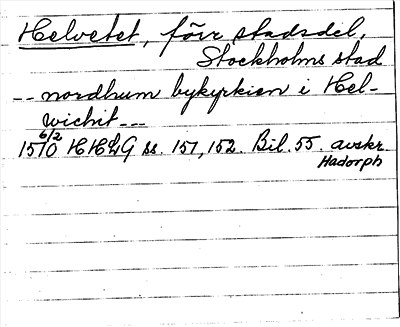 Helvetet, förr stadsdel,
Stockholms stad
-- nordhum bykyrkien i Hel-
wichit ---
15 6/2 70 HHLG ss. 151, 152. Bil. 55. avskr.
Hadorph